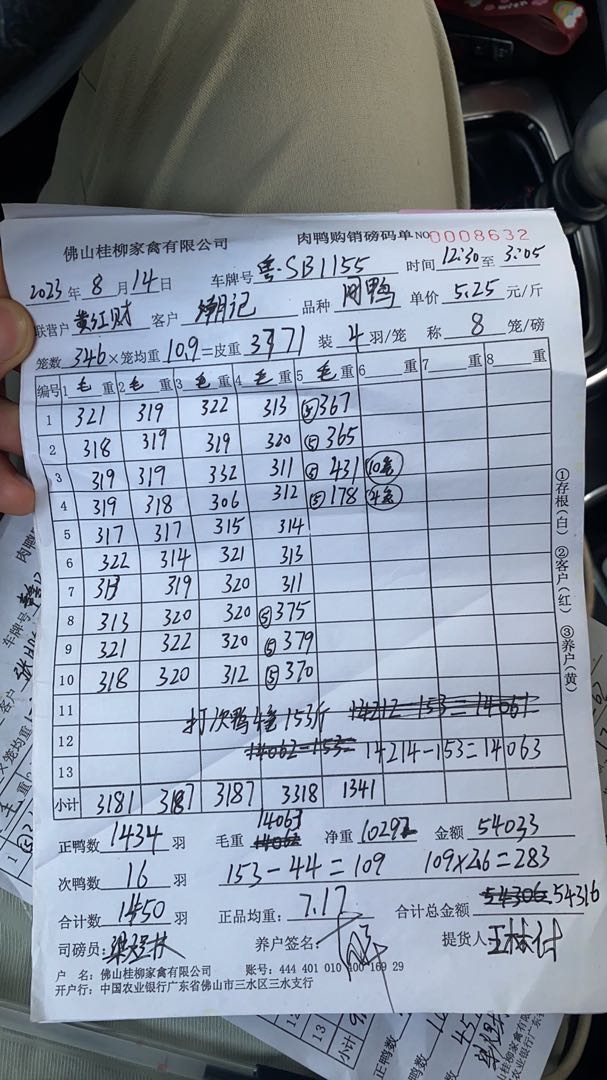 佛山桂柳家禽有限公司 肉鸭购销磅码单 NO 0008632
2023 年 8 月 14 日 车牌号 粤·SB1155 时间 12:30 至 3:05
联营户 黄江财 客户 潮记 品种 肉鸭 单价 5.25 元/斤
笼数 346 ×笼均重 10.9 =皮重 3771 装 4 羽/笼 称 8 笼/磅
编号 1 毛 重 2 毛 重 3 毛 重 4 毛 重 5 毛 重 6 重 7 重 8 重
1 321 319 322 313 ⑤367
2 318 319 319 320 ⑤365
3 319 319 332 311 ⑥431 10笼
4 319 318 306 312 ⑤178 4笼
5 317 317 315 314
6 322 314 321 313
7 313 319 320 311
8 313 320 320 ⑤375
9 321 322 320 ⑤379
10 318 320 312 ⑤370
11 打次鸭4笼153斤 14212-153=14061
12 14062-153= 14214-153=14063
13
小计 3181 3187 3187 3318 1341
14063
正鸭数 1434 羽 毛重 14062 净重 10292 金额 54033
次鸭数 16 羽 153-44=109 109×2.6=283
合计数 1450 羽 正品均重: 7.17 合计总金额 54306 54316
司磅员: 养户签名: 提货人
户 名: 佛山桂柳家禽有限公司 账号: 444 401 010 400 169 29
开户行: 中国农业银行广东省佛山市三水区三水支行
①存根(白) ②客户(红) ③养户(黄)